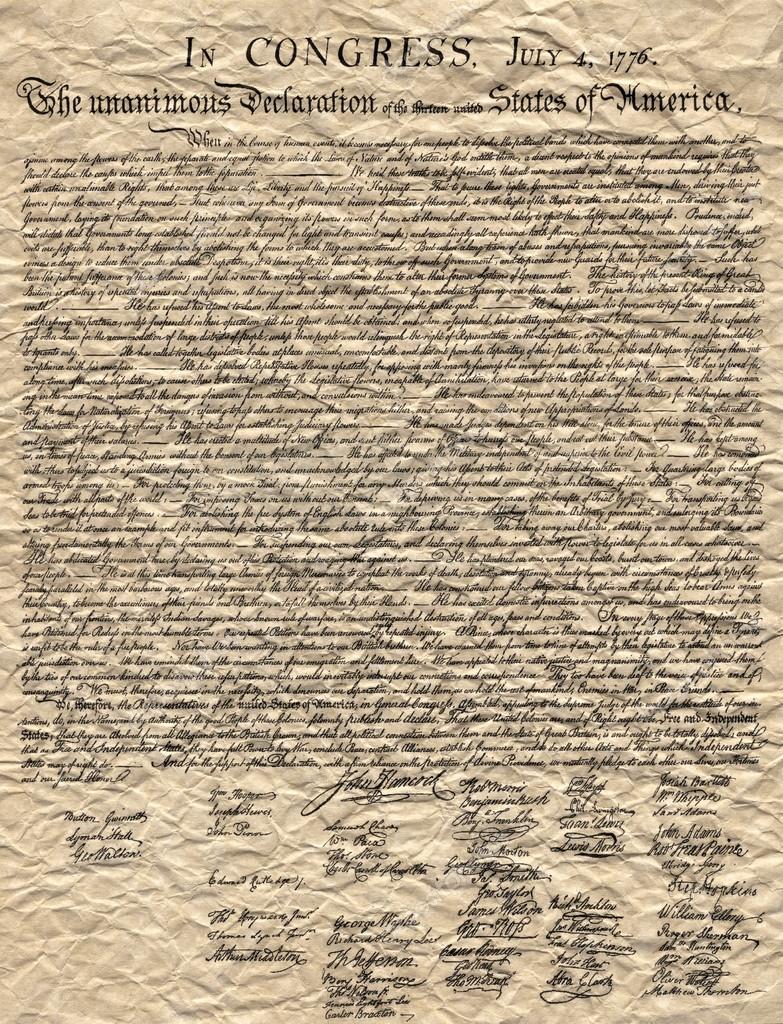 In CONGRESS, July 4, 1776.
The unanimous Declaration of the thirteen united States of America,
When in the Course of human events, it becomes necessary for one people to dissolve the political bands which have connected them with another, and to
assume among the powers of the earth, the separate and equal station to which the Laws of Nature and of Nature's God entitle them, a decent respect to the opinions of mankind requires that they
should declare the causes which impel them to the separation. — We hold these truths to be self-evident, that all men are created equal, that they are endowed by their Creator
with certain unalienable Rights, that among these are Life, Liberty and the pursuit of Happiness. — That to secure these rights, Governments are instituted among Men, deriving their just
powers from the consent of the governed, — That whenever any Form of Government becomes destructive of these ends, it is the Right of the People to alter or to abolish it, and to institute new
Government, laying its foundation on such principles and organizing its powers in such form, as to them shall seem most likely to effect their Safety and Happiness. Prudence, indeed,
will dictate that Governments long established should not be changed for light and transient causes; and accordingly all experience hath shewn, that mankind are more disposed to suffer, while
evils are sufferable, than to right themselves by abolishing the forms to which they are accustomed. But when a long train of abuses and usurpations, pursuing invariably the same Object
evinces a design to reduce them under absolute Despotism, it is their right, it is their duty, to throw off such Government, and to provide new Guards for their future security. — Such has
been the patient sufferance of these Colonies; and such is now the necessity which constrains them to alter their former Systems of Government. The history of the present King of Great
Britain is a history of repeated injuries and usurpations, all having in direct object the establishment of an absolute Tyranny over these States. To prove this, let Facts be submitted to a candid
world. — He has refused his Assent to Laws, the most wholesome and necessary for the public good. — He has forbidden his Governors to pass Laws of immediate
and pressing importance, unless suspended in their operation till his Assent should be obtained; and when so suspended, he has utterly neglected to attend to them. — He has refused to
pass other Laws for the accommodation of large districts of people, unless those people would relinquish the right of Representation in the Legislature, a right inestimable to them and formidable
to tyrants only. — He has called together legislative bodies at places unusual, uncomfortable, and distant from the depository of their public Records, for the sole purpose of fatiguing them into
compliance with his measures. — He has dissolved Representative Houses repeatedly, for opposing with manly firmness his invasions on the rights of the people. — He has refused for
a long time, after such dissolutions, to cause others to be elected; whereby the Legislative powers, incapable of Annihilation, have returned to the People at large for their exercise; the State remain-
ing in the mean time exposed to all the dangers of invasion from without, and convulsions within. — He has endeavoured to prevent the population of these States; for that purpose obstruc-
ting the Laws for Naturalization of Foreigners; refusing to pass others to encourage their migrations hither, and raising the conditions of new Appropriations of Lands. — He has obstructed the
Administration of Justice, by refusing his Assent to Laws for establishing Judiciary powers. — He has made Judges dependent on his Will alone, for the tenure of their offices, and the amount
and payment of their salaries. — He has erected a multitude of New Offices, and sent hither swarms of Officers to harrass our people, and eat out their substance. — He has kept among
us, in times of peace, Standing Armies without the Consent of our legislatures. — He has affected to render the Military independent of and superior to the Civil power. — He has combined
with others to subject us to a jurisdiction foreign to our constitution, and unacknowledged by our laws; giving his Assent to their Acts of pretended Legislation: — For Quartering large bodies of
armed troops among us: — For protecting them, by a mock Trial, from punishment for any Murders which they should commit on the Inhabitants of these States: — For cutting off
our Trade with all parts of the world: — For imposing Taxes on us without our Consent: — For depriving us in many cases, of the benefits of Trial by Jury: — For transporting us beyond
Seas to be tried for pretended offences: — For abolishing the free System of English Laws in a neighbouring Province, establishing therein an Arbitrary government, and enlarging its Boundaries
so as to render it at once an example and fit instrument for introducing the same absolute rule into these Colonies: — For taking away our Charters, abolishing our most valuable Laws, and
altering fundamentally the Forms of our Governments: — For suspending our own Legislatures, and declaring themselves invested with power to legislate for us in all cases whatsoever. —
He has abdicated Government here, by declaring us out of his Protection and waging War against us. — He has plundered our seas, ravaged our Coasts, burnt our towns, and destroyed the lives
of our people. — He is at this time transporting large Armies of foreign Mercenaries to compleat the works of death, desolation and tyranny, already begun with circumstances of Cruelty & perfidy
scarcely paralleled in the most barbarous ages, and totally unworthy the Head of a civilized nation. — He has constrained our fellow Citizens taken Captive on the high Seas to bear Arms against
their Country, to become the executioners of their friends and Brethren, or to fall themselves by their Hands. — He has excited domestic insurrections amongst us, and has endeavoured to bring on the
inhabitants of our frontiers, the merciless Indian Savages, whose known rule of warfare, is an undistinguished destruction of all ages, sexes and conditions. In every stage of these Oppressions We
have Petitioned for Redress in the most humble terms: Our repeated Petitions have been answered only by repeated injury. A Prince, whose character is thus marked by every act which may define a Tyrant,
is unfit to be the ruler of a free people. Nor have We been wanting in attentions to our Brittish brethren. We have warned them from time to time of attempts by their legislature to extend an unwarrant-
able jurisdiction over us. We have reminded them of the circumstances of our emigration and settlement here. We have appealed to their native justice and magnanimity, and we have conjured them
by the ties of our common kindred to disavow these usurpations, which, would inevitably interrupt our connections and correspondence. They too have been deaf to the voice of justice and of
consanguinity. We must, therefore, acquiesce in the necessity, which denounces our Separation, and hold them, as we hold the rest of mankind, Enemies in War, in Peace Friends. —
We, therefore, the Representatives of the united States of America, in General Congress, Assembled, appealing to the Supreme Judge of the world for the rectitude of our in-
tentions, do, in the Name, and by Authority of the good People of these Colonies, solemnly publish and declare, That these United Colonies are, and of Right ought to be Free and Independent
States; that they are Absolved from all Allegiance to the British Crown, and that all political connection between them and the State of Great Britain, is and ought to be totally dissolved; and
that as Free and Independent States, they have full Power to levy War, conclude Peace, contract Alliances, establish Commerce, and to do all other Acts and Things which Independent
States may of right do. — And for the support of this Declaration, with a firm reliance on the protection of divine Providence, we mutually pledge to each other our Lives, our Fortunes
and our sacred Honor.
Button Gwinnett
Lyman Hall
Geo Walton.
Wm Hooper
Joseph Hewes,
John Penn
Edward Rutledge /.
Thos Heyward Junr.
Thomas Lynch Junr.
Arthur Middleton
John Hancock
Samuel Chase
Wm Paca
Thos Stone
Charles Carroll of Carrollton
George Wythe
Richard Henry Lee
Th Jefferson
Benj Harrison
Thos Nelson jr.
Francis Lightfoot Lee
Carter Braxton
Robt Morris
Benjamin Rush
Benj. Franklin
John Morton
Geo Clymer
Jas Smith
Geo. Taylor
James Wilson
Geo. Ross
Caesar Rodney
Geo Read
Tho M:Kean
Wm Floyd
Phil. Livingston
Frans Lewis
Lewis Morris
Richd Stockton
Jno Witherspoon
Fras Hopkinson
John Hart
Abra Clark
Josiah Bartlett
Wm Whipple
Saml Adams
John Adams
Robt Treat Paine
Elbridge Gerry
Step. Hopkins
William Ellery
Roger Sherman
Sam Huntington
Wm Williams
Oliver Wolcott
Matthew Thornton